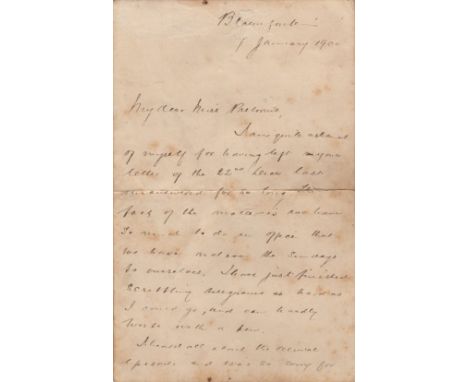 Bloemfontein
January 1900
My dear Miss
I am quite ashamed
of myself for having left your
letter of the 22nd last
unanswered for so long. The
fact of the matter is we have
so much to do in office that
we have not even the Sundays
to ourselves. I have just finished
scribbling telegrams as hard as
I could go, and can hardly
write with a pen.
I heard all about the
episode and was so sorry for